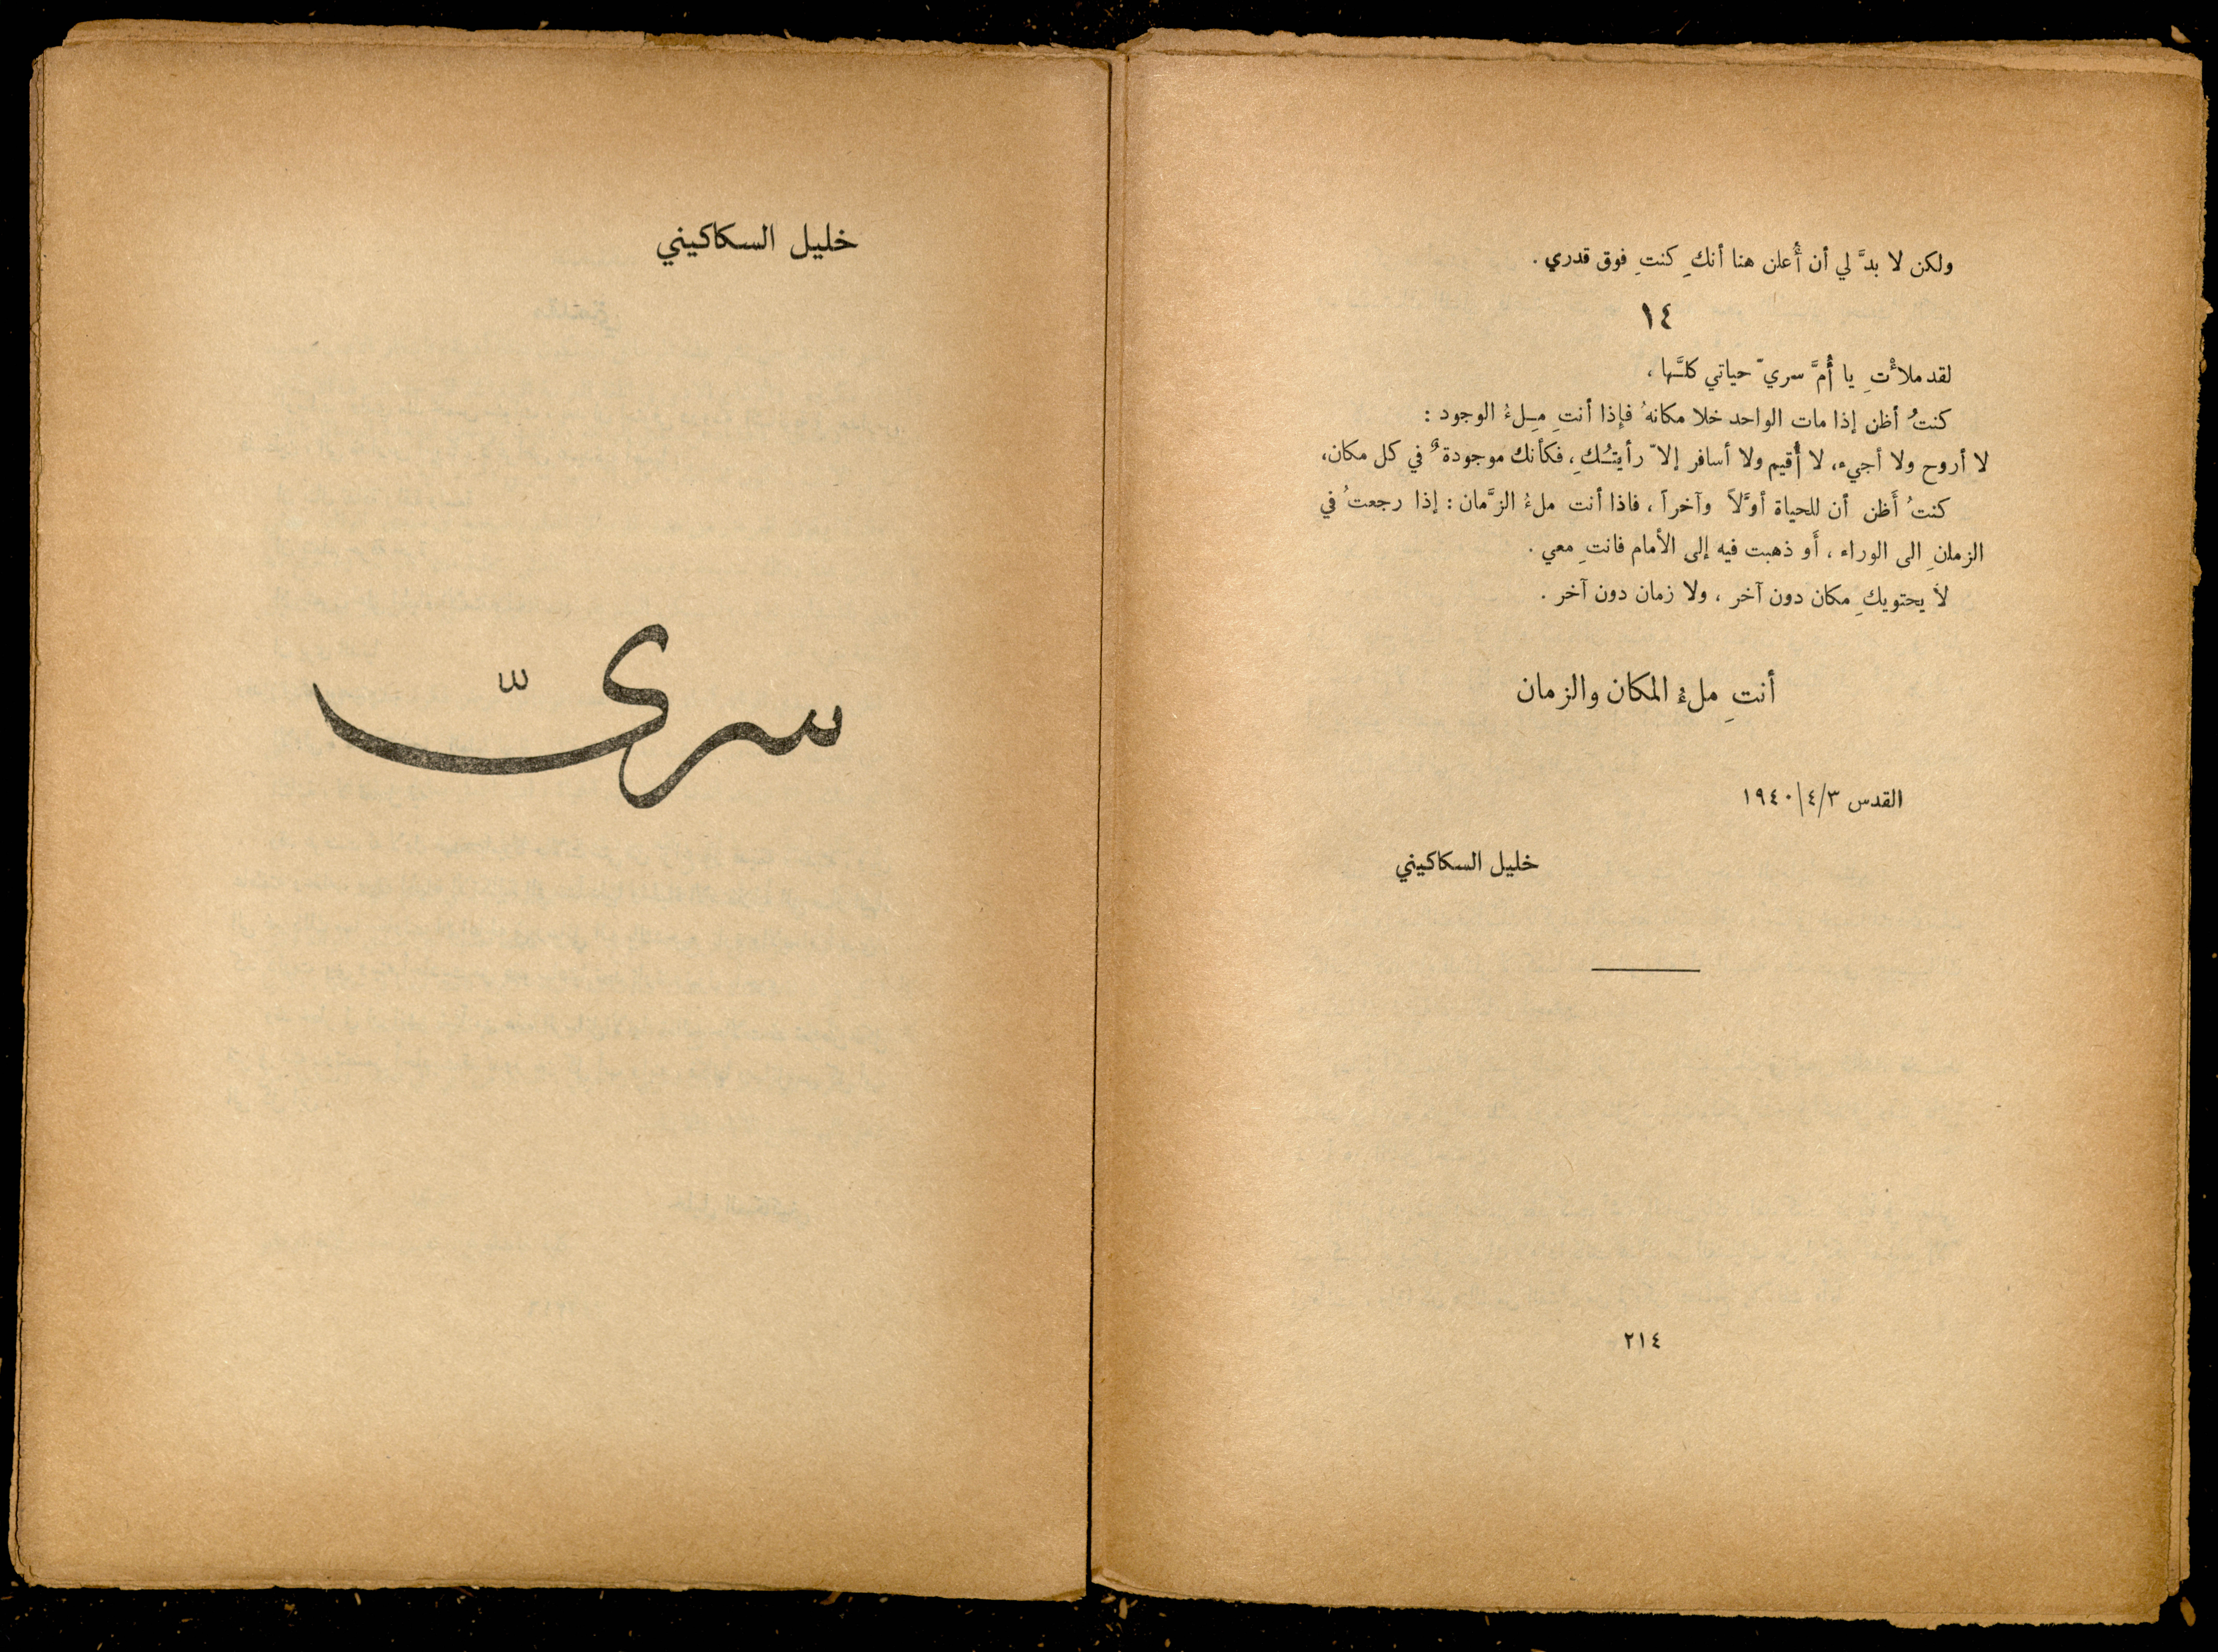 ولكن لا بدَّ لي أن أُعلن هنا أنكِ كنتِ فوق قدري .
١٤
لقد ملأْتِ يا أُمَّ سريّ حياتي كلَّها ،
كنتُ أظن إذا مات الواحد خلا مكانهُ فإذا أنتِ مِلءُ الوجود :
لا أروح ولا أجيء، لا أُقيم ولا أسافر إلاّ رأيتُكِ، فكأنك موجودةٌ في كل مكان،
كنتُ أَظن أن للحياة أوَّلاً وآخراً ، فاذا أنت ملءُ الزَّمان : إذا رجعتُ في
الزمانِ الى الوراء ، أَو ذهبت فيه إلى الأمام فانتِ معي .
لا يحتويكِ مكان دون آخر ، ولا زمان دون آخر .
أنتِ ملءُ المكان والزمان
القدس ١٩٤٠/٤/٣
خليل السكاكيني
٢١٤
خليل السكاكيني
سريّ